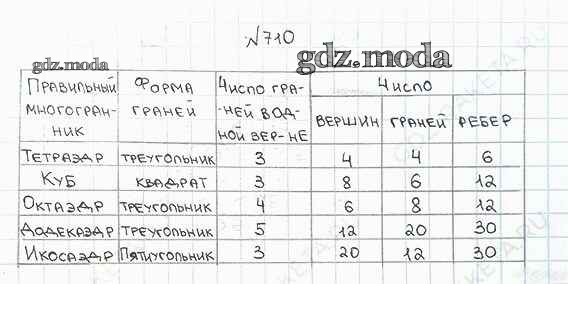 №710
gdz.moda
gdz.moda
Правильный многогранник Форма граней Число граней в одной вер-не Число
вершин граней ребер
Тетраэдр треугольник 3 4 4 6
Куб квадрат 3 8 6 12
Октаэдр треугольник 4 6 8 12
Додекаэдр треугольник 5 12 20 30
Икосаэдр пятиугольник 3 20 12 30